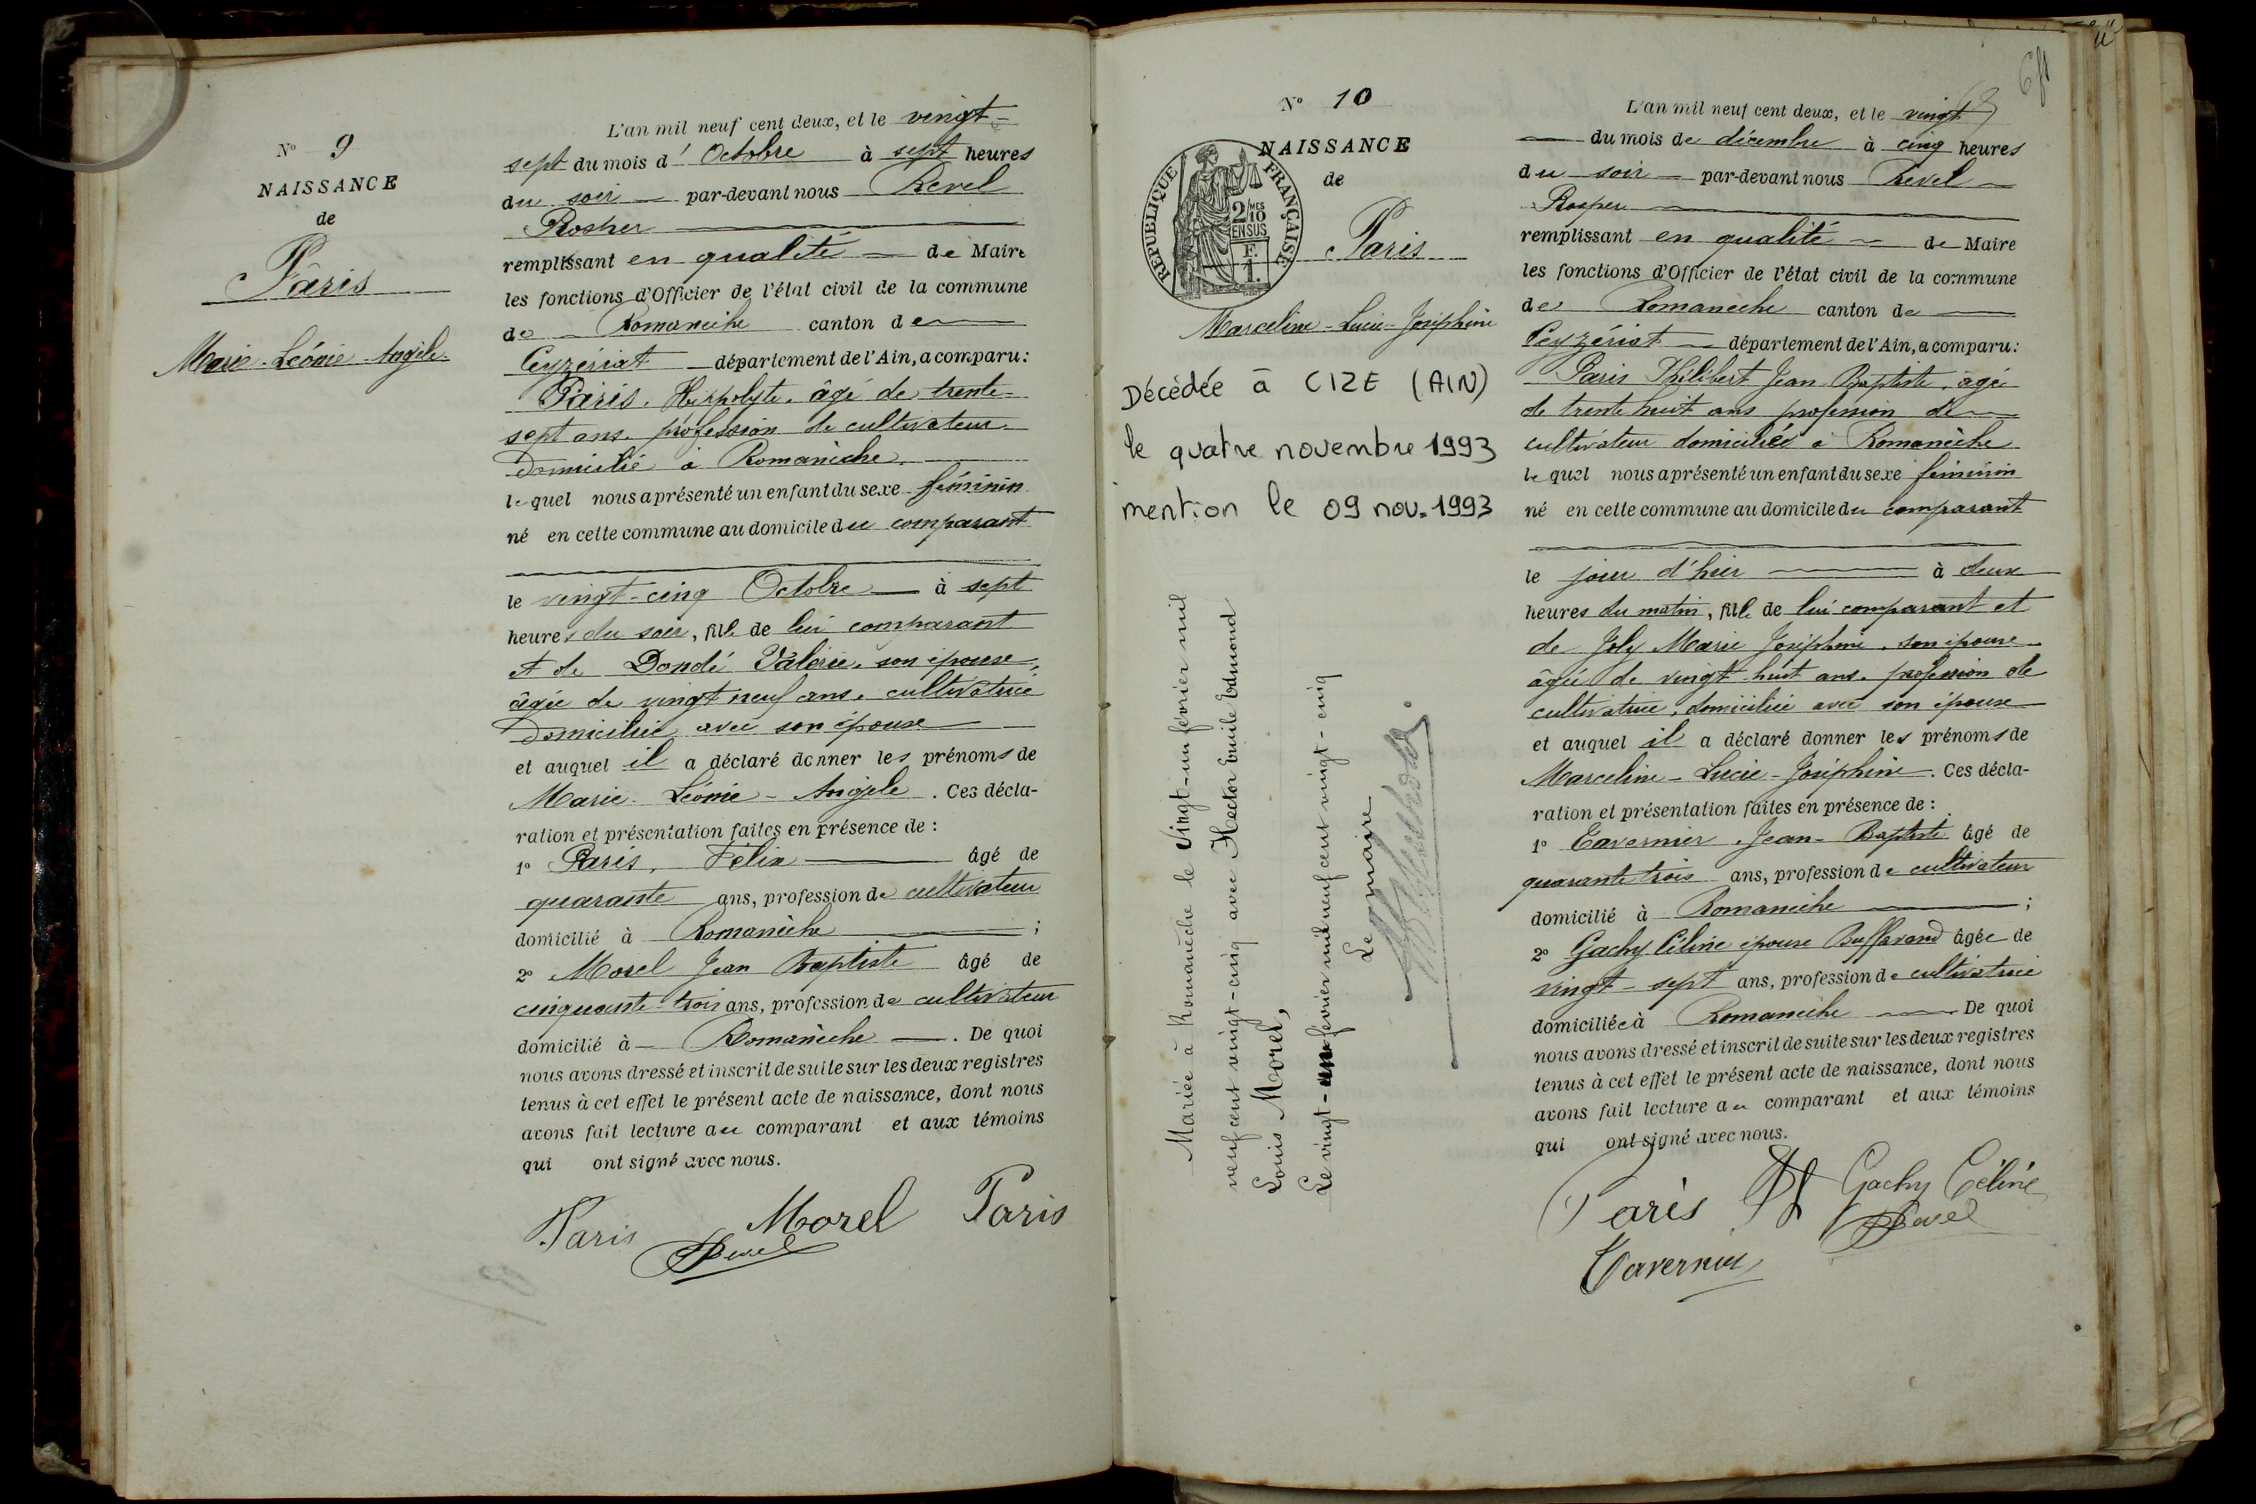 Nº 9
NAISSANCE
de
Pâris
Marie-Léonie-Angèle
L'an mil neuf cent deux, et le vingt-
sept du mois d'Octobre à sept heures
du soir par-devant nous Revel
Rosper
remplissant en qualité de Maire
les fonctions d'Officier de l'état civil de la commune
de Romanèche canton de
Ceyzériat département de l'Ain, a comparu:
Pâris, Hyppolyte, âgé de trente-
sept ans, profession de cultivateur
domicilié à Romanèche,
lequel nous a présenté un enfant du sexe féminin
né en cette commune au domicile du comparant
le vingt-cinq Octobre à sept
heures du soir, fille de lui comparant
et de Dondé Valérie, son épouse,
âgée de vingt neuf ans, cultivatrice
domiciliée avec son épouse
et auquel il a déclaré donner les prénoms de
Marie-Léonie-Angèle. Ces décla-
ration et présentation faites en présence de :
1º Pâris, Félix âgé de
quarante ans, profession de cultivateur
domicilié à Romanèche ;
2º Morel Jean Baptiste âgé de
cinquante-trois ans, profession de cultivateur
domicilié à Romanèche. De quoi
nous avons dressé et inscrit de suite sur les deux registres
tenus à cet effet le présent acte de naissance, dont nous
avons fait lecture au comparant et aux témoins
qui ont signé avec nous.
Paris Morel Paris
Revel
Nº 10
NAISSANCE
de
RÉPUBLIQUE FRANÇAISE
2/10 MES
EN SUS
F.
1.
Paris
Marceline-Lucie-Joséphine
Décédée à CIZE (AIN)
le quatre novembre 1993
mention le 09 nov. 1993
Mariée à Romanèche le Vingt-un février mil
neuf cent vingt-cinq avec Hector Emile Edmond
Louis Morel,
Le vingt-un février mil neuf cent vingt-cinq
Le maire
L'an mil neuf cent deux, et le vingt
du mois de décembre à cinq heures
du soir par-devant nous Revel
Rosper
remplissant en qualité de Maire
les fonctions d'Officier de l'état civil de la commune
de Romanèche canton de
Ceyzériat département de l'Ain, a comparu:
Paris Philibert Jean Baptiste, âgé
de trente huit ans profession de
cultivateur domicilié à Romanèche
lequel nous a présenté un enfant du sexe féminin
né en cette commune au domicile du comparant
le jour d'hier à deux
heures du matin, fille de lui comparant et
de Joly Marie Joséphine, son épouse
âgée de vingt-huit ans, profession de
cultivatrice, domiciliée avec son épouse
et auquel il a déclaré donner les prénoms de
Marceline-Lucie-Joséphine. Ces décla-
ration et présentation faites en présence de :
1º Tavernier, Jean-Baptiste âgé de
quarante trois ans, profession de cultivateur
domicilié à Romanèche ;
2º Gachy Céline épouse Buffavand âgée de
vingt-sept ans, profession de cultivatrice
domiciliée à Romanèche De quoi
nous avons dressé et inscrit de suite sur les deux registres
tenus à cet effet le présent acte de naissance, dont nous
avons fait lecture au comparant et aux témoins
qui ont signé avec nous.
Paris Gachy Céline
Revel
Tavernier